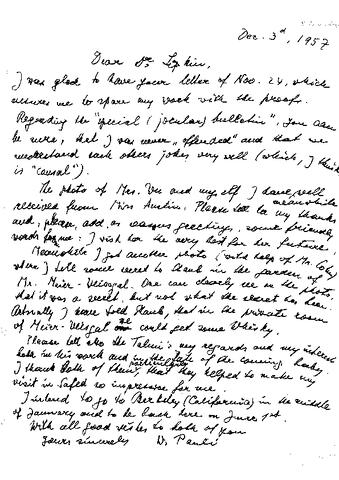 Dec. 3d, 1957
Dear Dr. Lipkin,
I was glad to have your letter of Nov. 24, which
me to spare my work with the proofs.
Regarding the "special (jocular) bulletin", you can
be sure, that I was never "offended" and that we
understand each others jokes very well (which, I think
is "causal").
The photo of Mrs. Wu and myself I have well
meanwhile
received from Miss Austin. Please tell her my thanks
and, please, add, as season greetings, some friendly
words from me: I wish her the very best for her future.
Meanwhile I got another photo (with help of Mr. Cohen)
where I tell some secret to Staub in the garden of
Mr. Meier-Weisgal. One can clearly see on the photo,
that it was a secret, but not what the secret has been.
Actually I have told Staub, that in the private room
of Meier-Weisgal he could get some Whisky.
Please tell also the Talmi's my regards and my interest
both in his work and in the fate of the coming baby.
I thank both of them, that they helped to make my
visit in Safed so impressive for me.
I intend to go to Berkeley (California) in the middle
of January and to be back here on June 1st.
With all good wishes to both of you
Yours sincerely W. Pauli